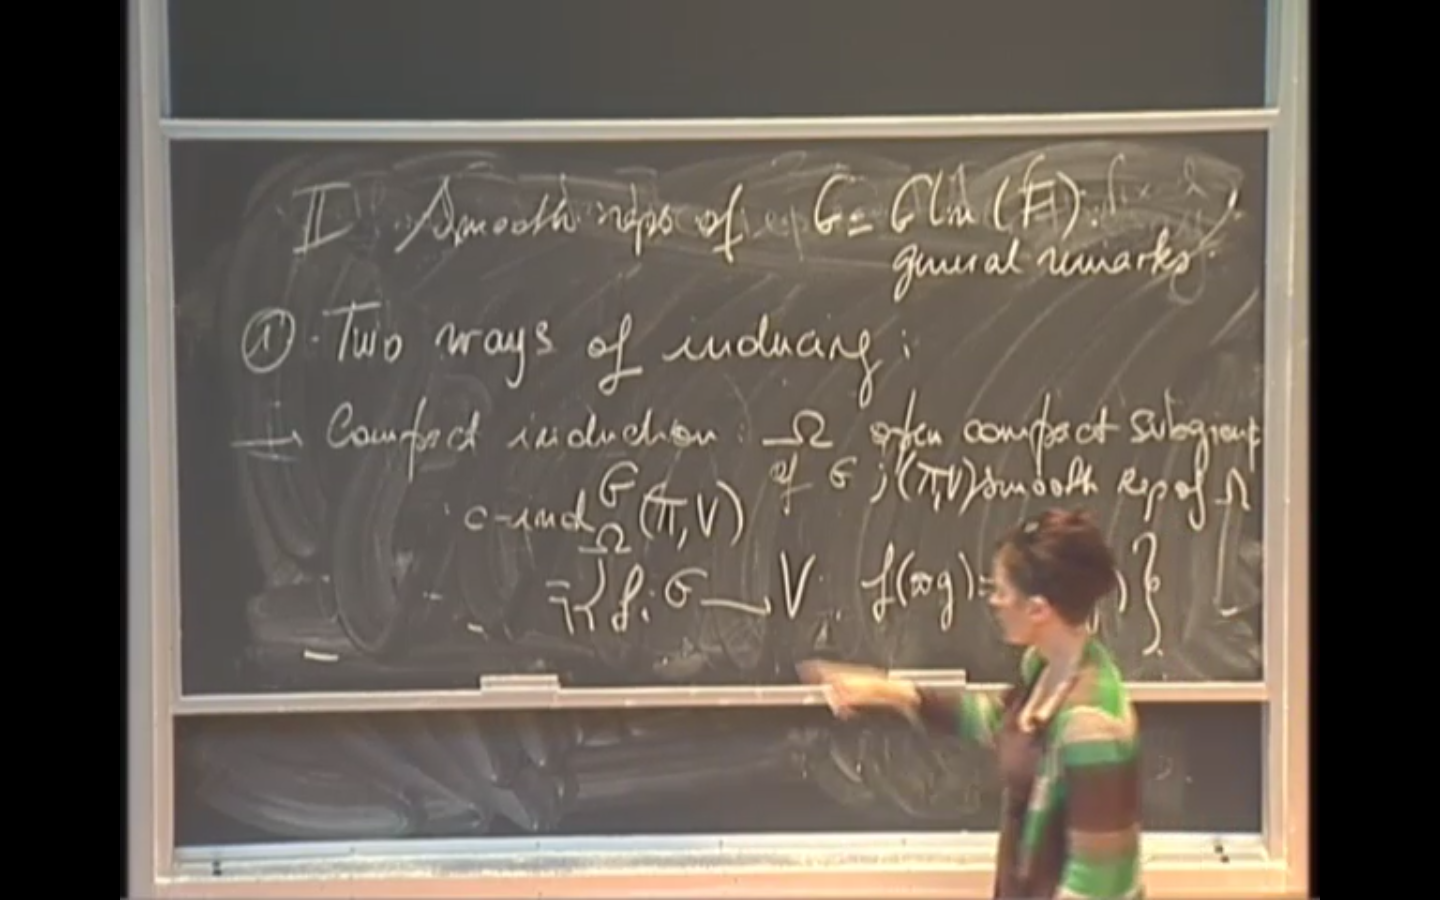 II. Smooth reps of G = GLn(F).
general remarks.
① . Two ways of inducing :
→ Compact induction : Ω open compact subgroup
of G ; (π,V) smooth rep of Ω
c-ind_Ω^G (π,V)
= { f : G → V . f(ωg) = ) }